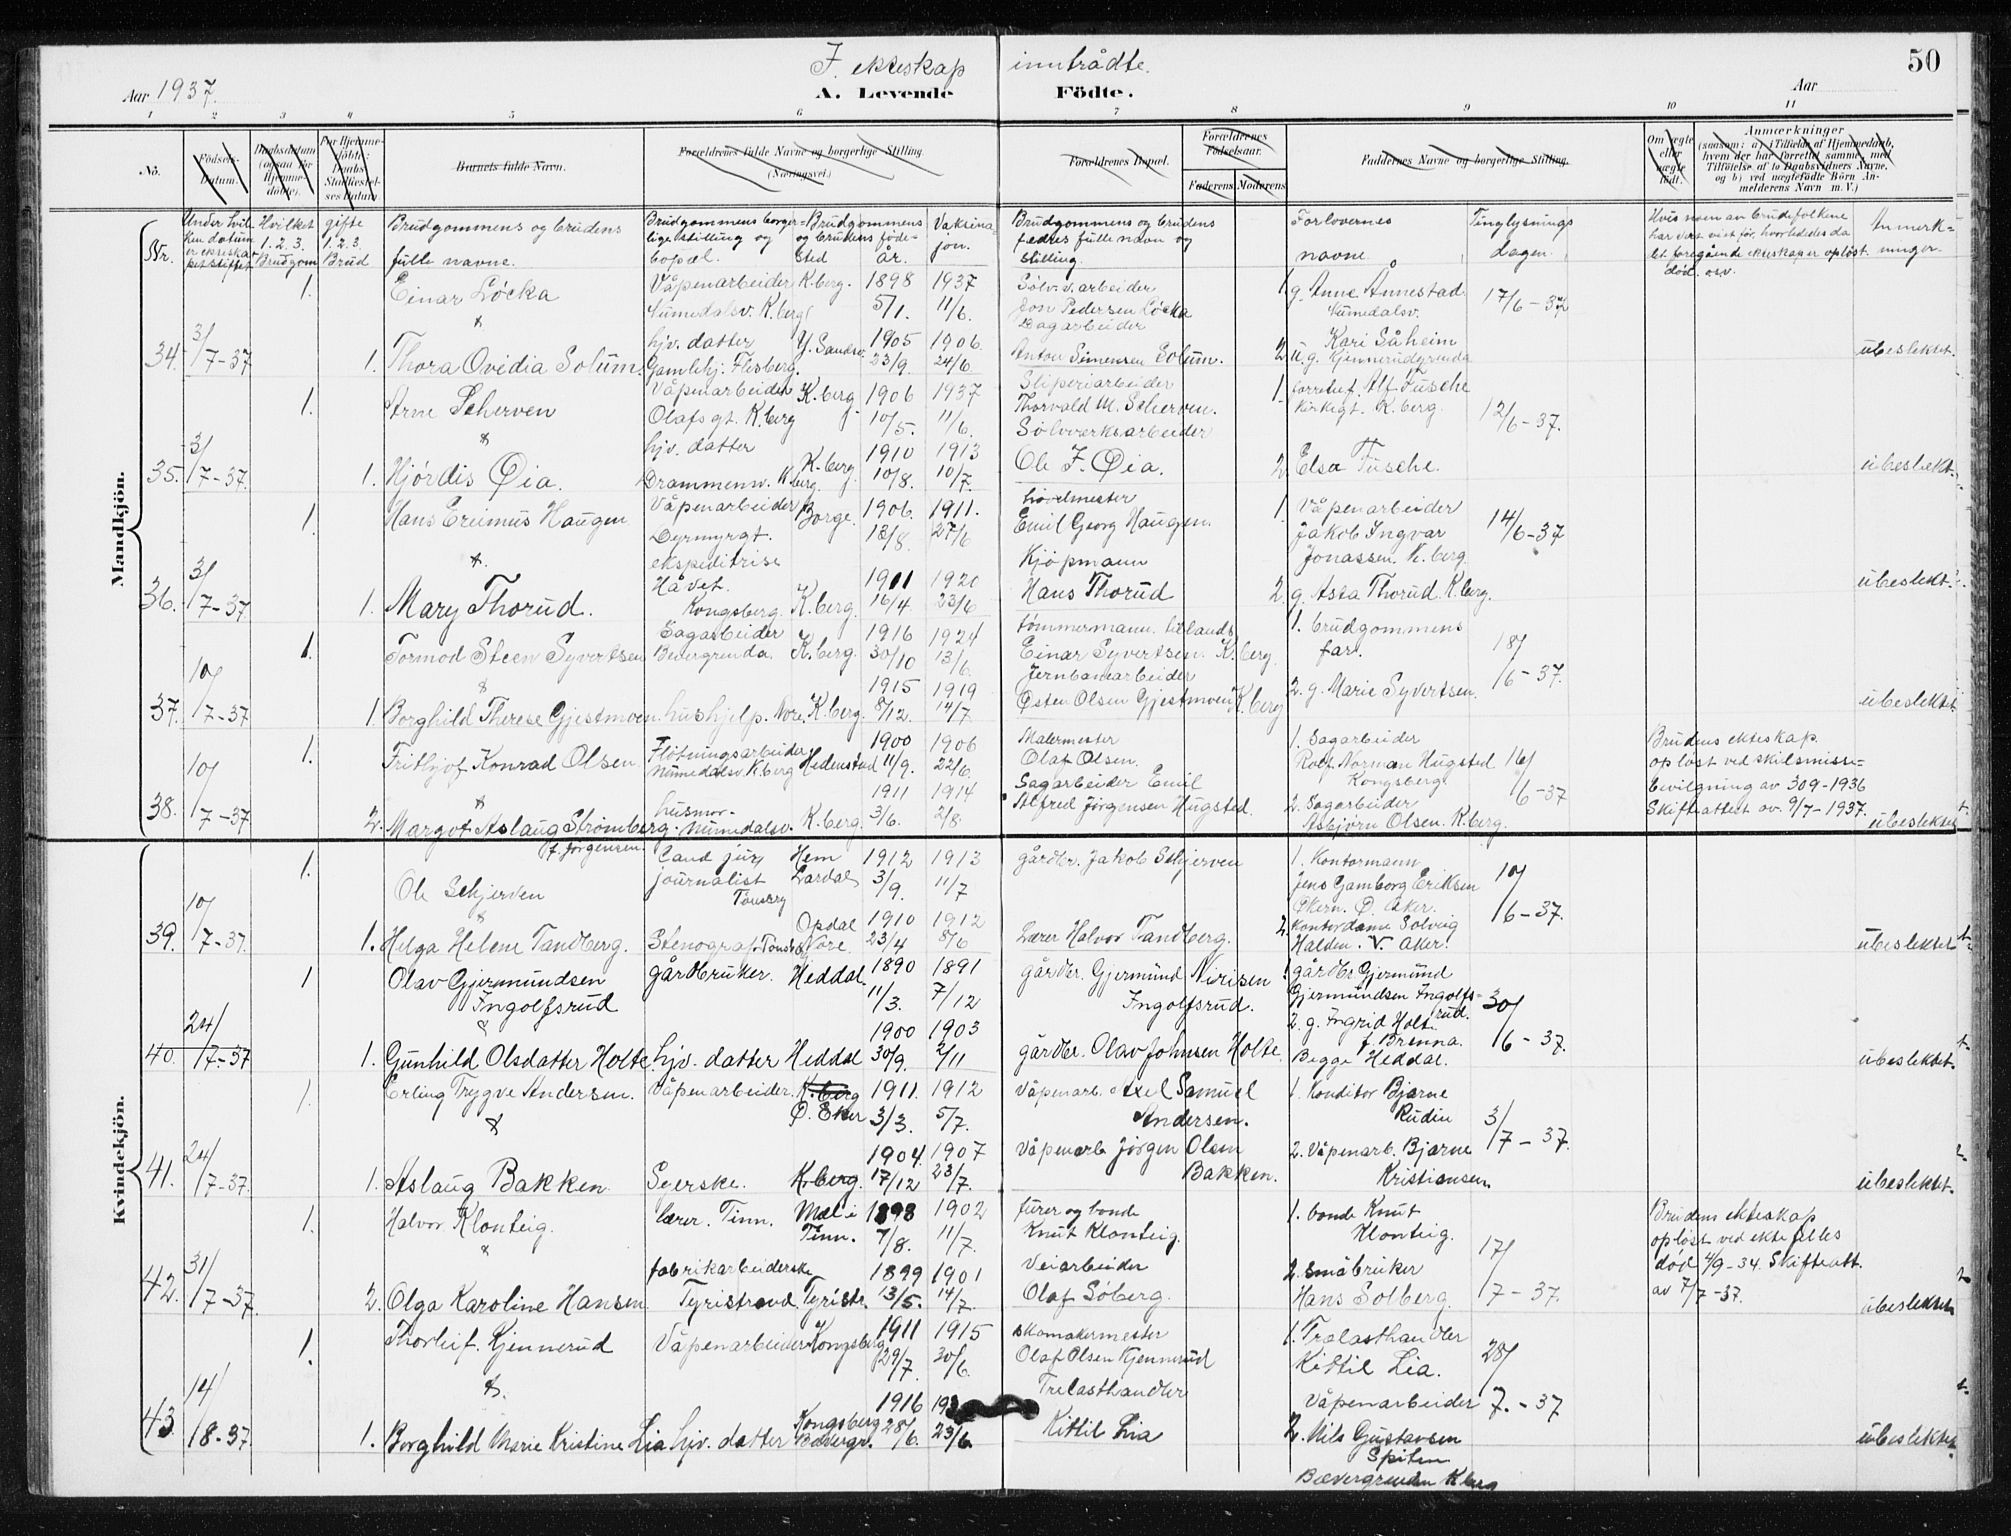 I ekteskap inntrådte. 50
Aar 1937. A. Levende Födte. Aar
1 2 3 4 5 6 7 8 9 10 11
No. Födsels-Datum. Daabsdatum (ogsaa for Hjemmedöbte). For Hjemmedöbte: Daabs Stadfæstelses Datum Barnets fulde Navn. Forældrenes fulde Navne og borgerlige Stilling. (Næringsvei.) Forældrenes Bopæl. Forældrenes Födselsaar. Faderens. Moderens. Faddernes Navne og borgerlige Stilling. Om ægte eller uægte födt. Anmærkninger
(saasom: a) i Tilfælde af Hjemmedaab, hvem der har forrettet samme, med Tilföielse af to Daabsvidners Navne, og b) ved uægtefödte Börn Anmelderens Navn m. V.)
Nr. Under hvilken datum er ekteskapet stiftet Hvilket 1. 2. 3. Brudgom gifte 1. 2. 3. Brud Brudgommens og brudens fulle navne. Brudgommens borgerlige stilling og bopæl. Brudgommens og brudens fødested år. Vaksinasjon. Brudgommens og brudens fædres fulle navn og stilling. Forlovernes navne Tinglysnings dagen. Hvis noen av brudefolkene har vært vist før, hvorledes da det foregående ekteskap er opløst. død. osv. Anmerkninger
Mandkjön.
34. 3/7-37 1. Einar Løcka Våpenarbeider Numedalsv. K.berg K.berg. 1898 5/1. 1937 11/6. Sølvv.arbeider Jon Pedersen Løcka 1. g. Anne Annestad Numedalsv. 17/6-37
& 1. Thora Ovidia Solum. hjv. datter Gamlehj. Flesberg. Y. Sandsv. 1905 23/9. 1906 24/6. Sagarbeider Anton Simensen Solum. 2. u.g. Kari Såheim Kjennerudgrenda ubeslektet.
35. 3/7-37. 1. Arne Scherven Våpenarbeider Olafsgt. K.berg K.berg 1906 10/5. 1937 11/6. Sliperiarbeider Thorvald M. Scherven. 1. forretn.f. Alf Tusche Kirkegt. K.berg. 12/6-37.
& 1. Hjørdis Øia. hjv. datter Drammensv. K.berg. K.berg. 1910 10/8. 1913 10/7. Sølvverksarbeider Ole J. Øia. 2. Elsa Tusche. ubeslekt.
36. 3/7-37 1. Hans Ereimus Haugen Våpenarbeider Dyrmyrgt. Borge. 1906. 18/8. 1911. 27/6 Emil Georg Haugen. 1. Våpenarbeider Jakob Ingvar Jonassen. K.berg 14/6-37
& 1. Mary Thorud. ekspeditrise Håvet. Kongsberg. K.berg. 1911 16/4. 1920 23/6 Kjøpmann Hans Thorud 2. g. Asta Thorud K.berg. ubeslekt.
37. 10/7-37 1. Tormod Steen Syvertsen Sagarbeider Bevergrenda. K.berg. 1916 30/10 1924 13/6. tømmermann. tillands Einar Syvertsen. K.berg. 1. brudgommens far. 18/6-37.
& 1. Borghild Therese Gjestmoen. hushjelp. Nore. K.berg. 1915 8/12. 1919 14/7 Jernbanearbeider Østen Olsen Gjestmoen K.berg 2. g. Marie Syvertsen. ubeslektet.
38. 10/7-37 1. Frithjof Konrad Olsen. Fløtningsarbeider Numedalsv. K.berg Hedenstad 1900 11/9. 1906 22/6. Malermester Olaf Olsen. 1. Sagarbeider Rolf Norman Hugsted Kongsberg. 16/6-37 Brudens ekteskap opløst ved skilsmisse-
& 2. Margot Aslaug Strømberg f. Jørgensen. husmor. Numedalsv. K.berg. 1911 3/6. 1914 2/8. Sagarbeider Emil Alfred Jørgensen Hugsted. 2. Sagarbeider Asbjørn Olsen. K.berg. bevilgning av 30 9-1936 Skifteattest av. 9/7-1937. ubeslektet
Kvindekjön.
39. 10/7-37. 1. Ole Schjerven Cand jur, journalist Tønsberg Hem Lardal 1912 3/9. 1913 11/7 gårdbr. Jakob Schjerven 1. Kontormann Jens Gamborg Eriksen Økern. Ø. Aker. 10/6-37.
& 1. Helga Helene Tandberg. Stenograf. Tønsberg Opdal Nore 1910 23/4 1912 8/6 Lærer Halvor Tandberg. 2. Kontordame Solveig Halden. V. Aker. ubeslektet
40. 24/7-37 1 Olav Gjermundsen Ingolfsrud gårdbruker. Heddal. 1890 11/3. 1891 7/12 gårdbr. Gjermund Nirisen Ingolfsrud. 1. gårdbr. Gjermund Gjermundsen Ingolfsrud. 30/6-37.
& 1. Gunhild Olsdatter Holte. hjv. datter Heddal 1900 30/9. 1903 2/11 gårdbr. Olav Johnsen Holte. 2. g. Ingrid Holt f. Brenna. Begge Heddal. ubeslektet.
41. 24/7-37. 1. Erling Trygve Andersen. Våpenarbeider. K.berg Ø. Eker 1911. 3/3. 1912 5/7. Våpenarb. Axel Samuel Andersen. 1. Konditor Bjarne Rudin 3/7-37.
& 1. Aslaug Bakken Syerske. K.berg. 1904. 17/12 1907 23/7. Våpenarb. Jørgen Olsen Bakken. 2. Våpenarb. Bjarne Kristiansen ubeslektet.
42. 31/7-37. 1. Halvor Klonteig. lærer. Tinn. Mæl i Tinn. 1898 7/8. 1902 11/7. furer og bonde Knut Klonteig. 1. bonde Knut Klonteig. 17/7-37. Brudens ekteskap opløst ved ektefelles
& 2. Olga Karoline Hansen fabrikarbeiderske Tyristrand. Tyristr. 1899 13/5. 1901 14/7. Veiarbeider Olaf Søberg. 2. Småbruker Hans Solberg. død 4/9-34. Skifteatt. av 7/7-37. ubeslektet
43. 14/8-37. 1. Thorleif Kjennerud Våpenarbeider Kongsberg 1911 29/7. 1915 30/6. skomakermester Olaf Olsen Kjennerud 1. Trelasthandler Kittil Lia. 28/7.-37
&. 1. Borghild Marie Kristine Lia hjv. datter Kongsberg Bævergr. 1916 28/6. 193 23/6. Trelasthandler Kittil Lia 2. Våpenarbeider Nils Gustavsen Spiten Bævergrenden K.berg ubeslektet.